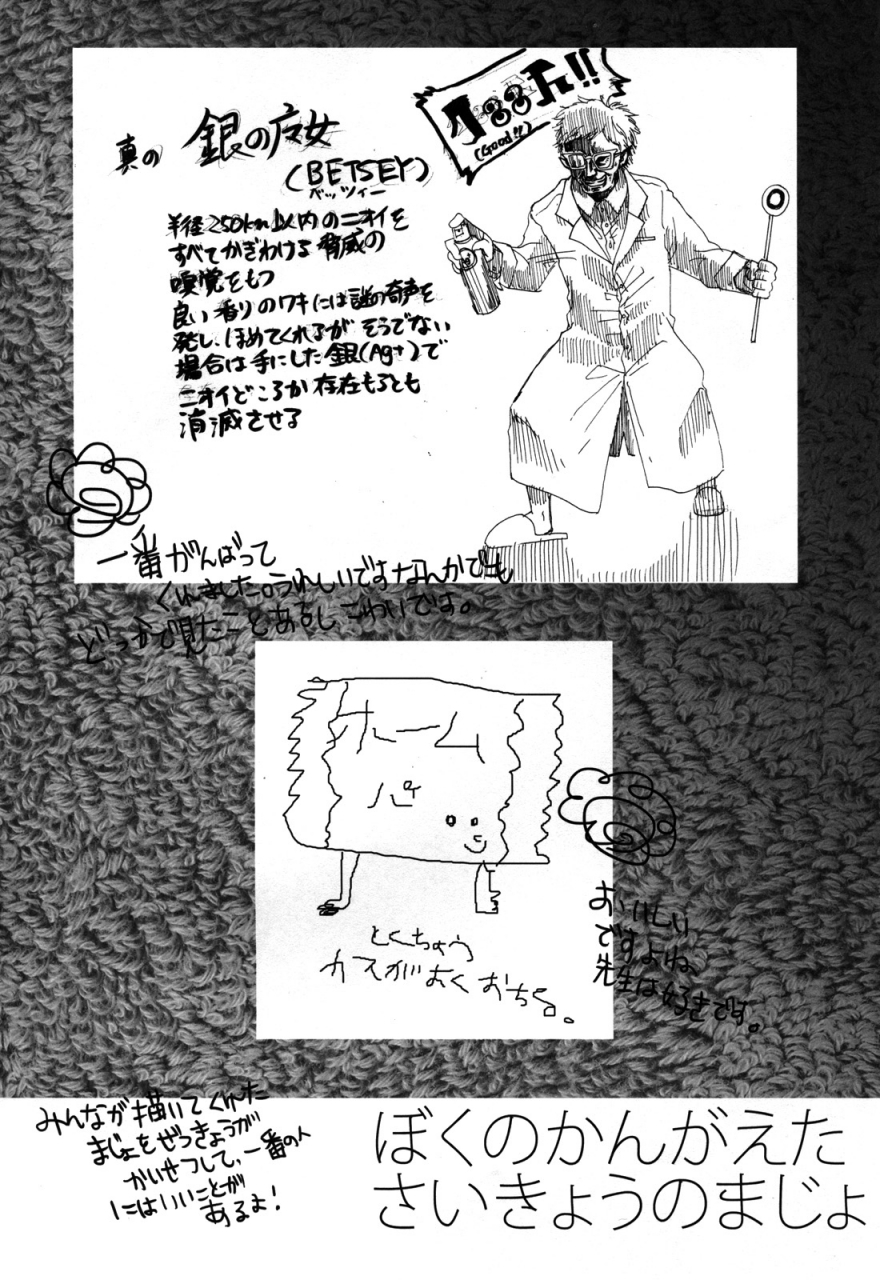 真の 銀の魔女
(BETSEY)
ベッツィー
半径250km以内のニオイを
すべてかぎわける脅威の
嗅覚をもつ
良い香りのワキには謎の奇声を
発し、ほめてくれるが そうでない
場合は手にした銀(Ag+)で
ニオイどころか存在もろとも
消滅させる
(Good!!)
一番がんばって
くれました。うれしいですなんかでも
どっかで見たことあるしこわいです。
ホーム
パイ
とくちょう
カスがおくおちる。
おいしい
ですよね、
先生は好きです。
みんなが描いてくれた
まじょをぜっきょうが
かいせつして、一番の人
にはいいことが
あるよ!
ぼくのかんがえた
さいきょうのまじょ